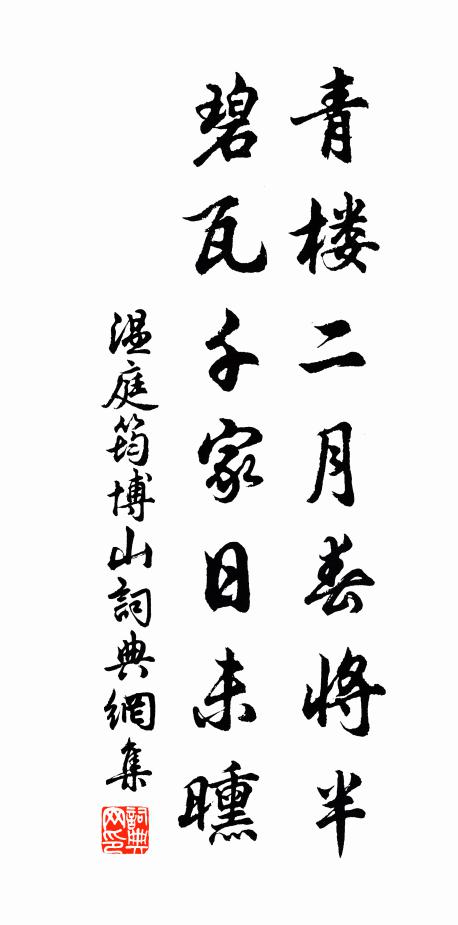 青楼二月春将半
碧瓦千家日未曛
温庭筠博山詞典網集
詞典网印